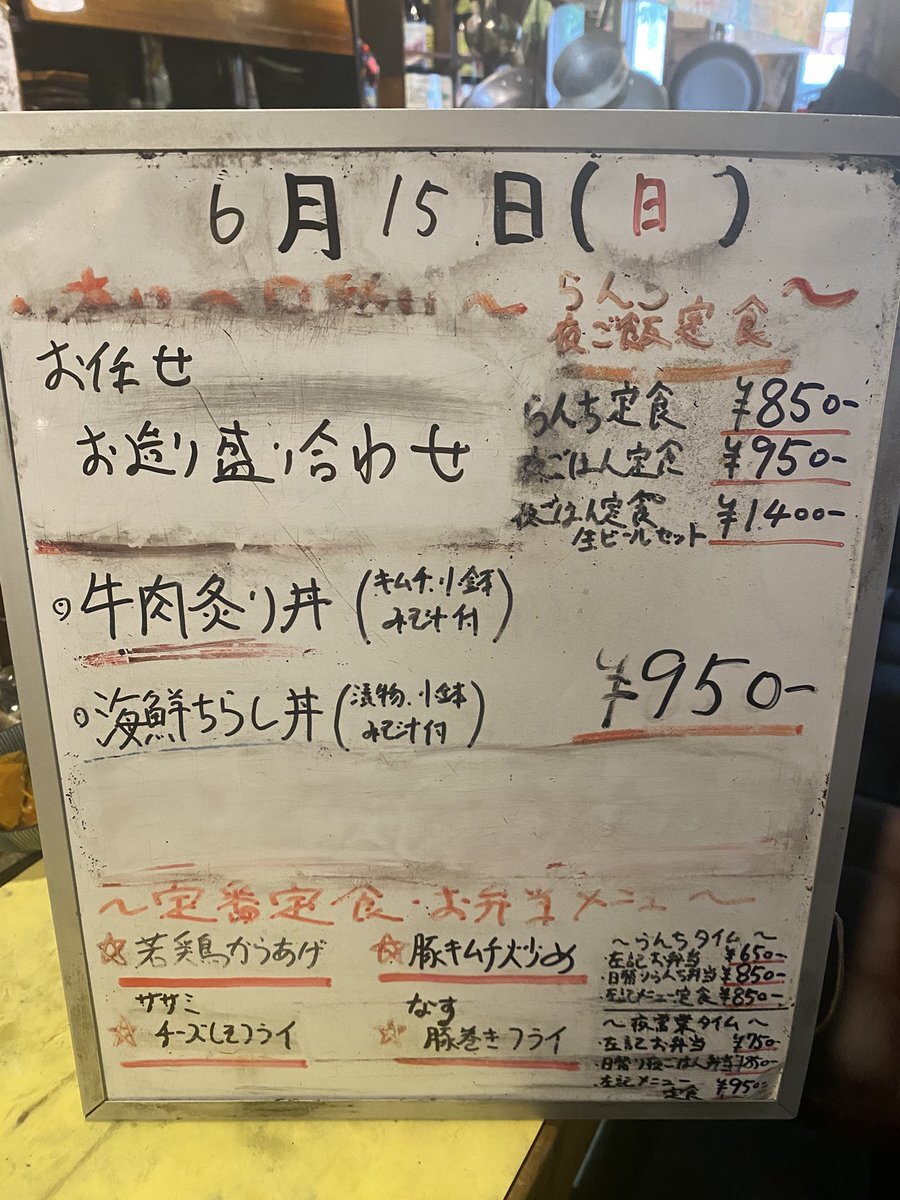 6月15日(日)
お任せ
お造り盛り合わせ
～らんち
夜ご飯定食～
らんち定食 ¥850-
夜ごはん定食 ¥950-
夜ごはん定食
生ビールセット ¥1400-
◎牛肉炙り丼(キムチ、小鉢
みそ汁付)
◎海鮮ちらし丼(漬物、小鉢
みそ汁付)
¥950-
～定番定食・お弁当メニュー～
☆若鶏からあげ
☆豚キムチ炒め
☆ササミ
チーズしそフライ
☆なす
豚巻きフライ
～らんちタイム～
・左記お弁当 ¥650-
・日替りらんち弁当 ¥850-
・左記メニュー定食 ¥850-
～夜営業タイム～
・左記お弁当 ¥750-
・日替り夜ごはん弁当 ¥850-
・左記メニュー
定食 ¥950-